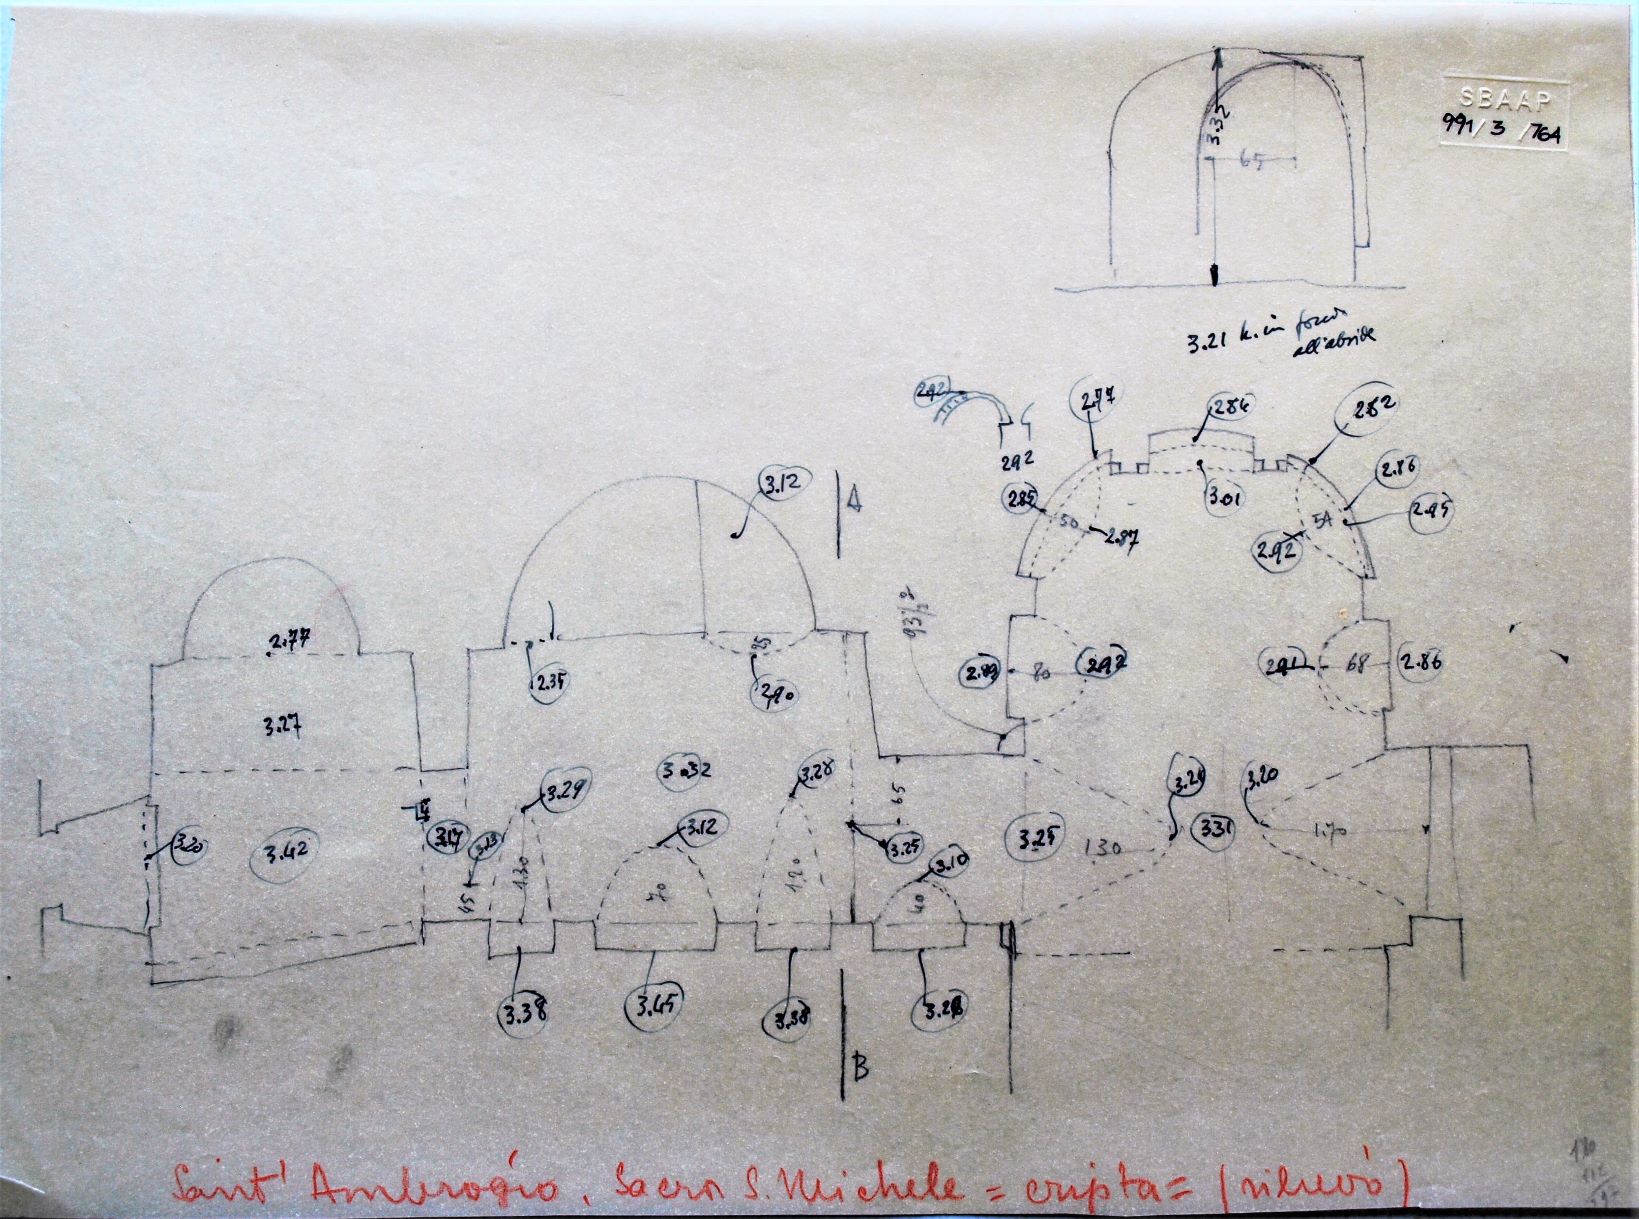 SBAAP
991/3/764
3.32
65
3.21 h. in fondo
all'abside
2.92
2.77
2.86
2.82
292
3.12
A
285
50
2.87
3.01
2.86
2.95
54
2.92
93½
2.77
2.35
2.90
2.89
80
2.92
2.91
68
2.86
3.27
3.32
3.29
3.28
65
3.20
3.20
3.42
3.17
3.13
45
1.30
3.12
70
1.20
3.25
3.10
40
3.25
130
331
1.70
3.38
3.45
3.38
3.28
B
Sant' Ambrogio. Sacra S. Michele = cripta = (rilievo)